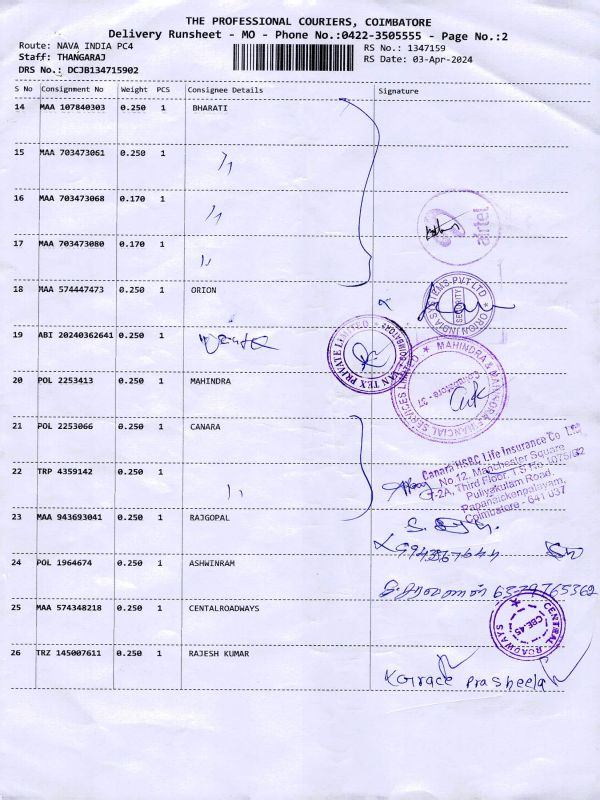 THE PROFESSIONAL COURIERS, COIMBATORE
Delivery Runsheet - MO - Phone No.:0422-3505555 - Page No.:2
Route: NAVA INDIA PC4
RS No.: 1347159
Staff: THANGARAJ
RS Date: 03-Apr-2024
DRS No.: DCJB134715902
S No Consignment No Weight PCS Consignee Details Signature
14 MAA 107840303 0.250 1 BHARATI
15 MAA 703473061 0.250 1
16 MAA 703473068 0.170 1
airtel
17 MAA 703473080 0.170 1
18 MAA 574447473 0.250 1 ORION
ORION INDIA SYSTEMS PVT LTD
SECURITY
19 ABI 20240362641 0.250 1
TEX PRIVATE LIMITED
20 POL 2253413 0.250 1 MAHINDRA
MAHINDRA & MAHINDRA FINANCIAL SERVICES LIMITED
Coimbatore - 37
21 POL 2253066 0.250 1 CANARA
Canara HSBC Life Insurance Co Ltd
No 12, Manchester Square
F-2A, Third Floor T.S No 1075/6/2
Puliyakulam Road,
Papanaickenpalayam,
Coimbatore - 641 037
22 TRP 4359142 0.250 1
23 MAA 943693041 0.250 1 RAJGOPAL
24 POL 1964674 0.250 1 ASHWINRAM
25 MAA 574348218 0.250 1 CENTALROADWAYS
CENTRAL ROADWAYS
CBE-45
26 TRZ 145007611 0.250 1 RAJESH KUMAR
Prasheela